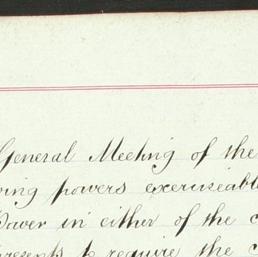 General Meeting of the
ving powers exerciseabl
Power in either of the c
presents to require the c